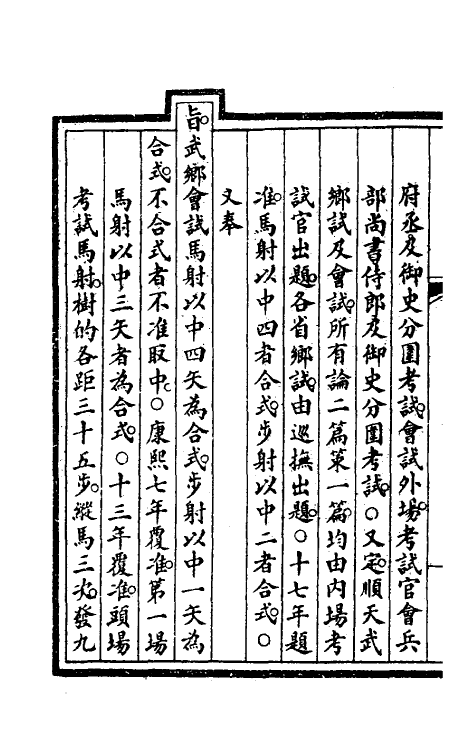 府丞及御史分圍考試會試外場考試官會兵
部尚書侍郎及御史分圍考試○又定順天武
鄉試及會試所有論二篇策一篇均由內場考
試官出題各省鄉試由巡撫出題○十七年題
准馬射以中四者合式步射以中二者合式○
又奉
旨武鄉會試馬射以中四矢為合式步射以中一矢為
合式不合式者不准取中○康熙七年覆准第一場
馬射以中三矢者為合式○十三年覆准頭場
考試馬射樹的各距三十五步縱馬三次發九